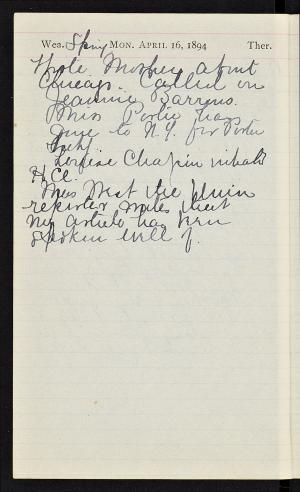 Wea. Spring MON. APRIL 16, 1894 Ther.
Wrote Mother about
Chicago. Called on
Jeannie Barrows.
Miss Porter has
gone to N.Y. for Porter
Louise Chapin
Miss West the
reporter writes that
my article has been
spoken well of.